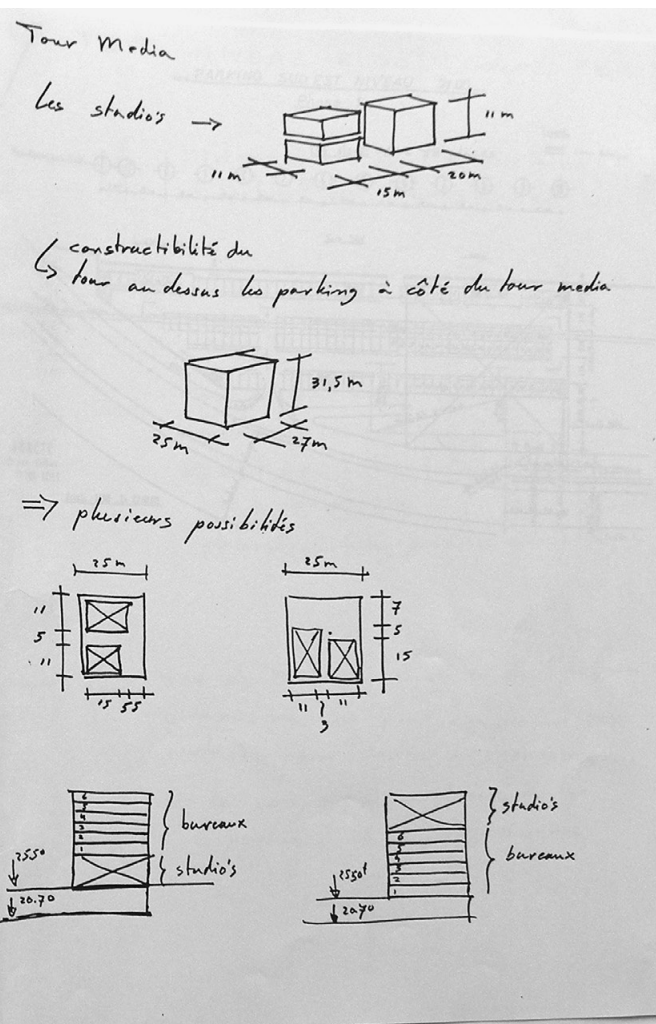 Tour Media
Les studio's →
11 m
11 m
15m
20m
constructibilité du
tour au dessus les parking à côté du tour media
31,5 m
25m
27m
⇒ plusieurs possibilités
25m
25m
11
5
11
15
55
7
5
15
11
3
11
6
5
4
3
2
1
bureaux
studio's
2550
20.70
studio's
6
5
4
3
2
1
bureaux
2550
20.70